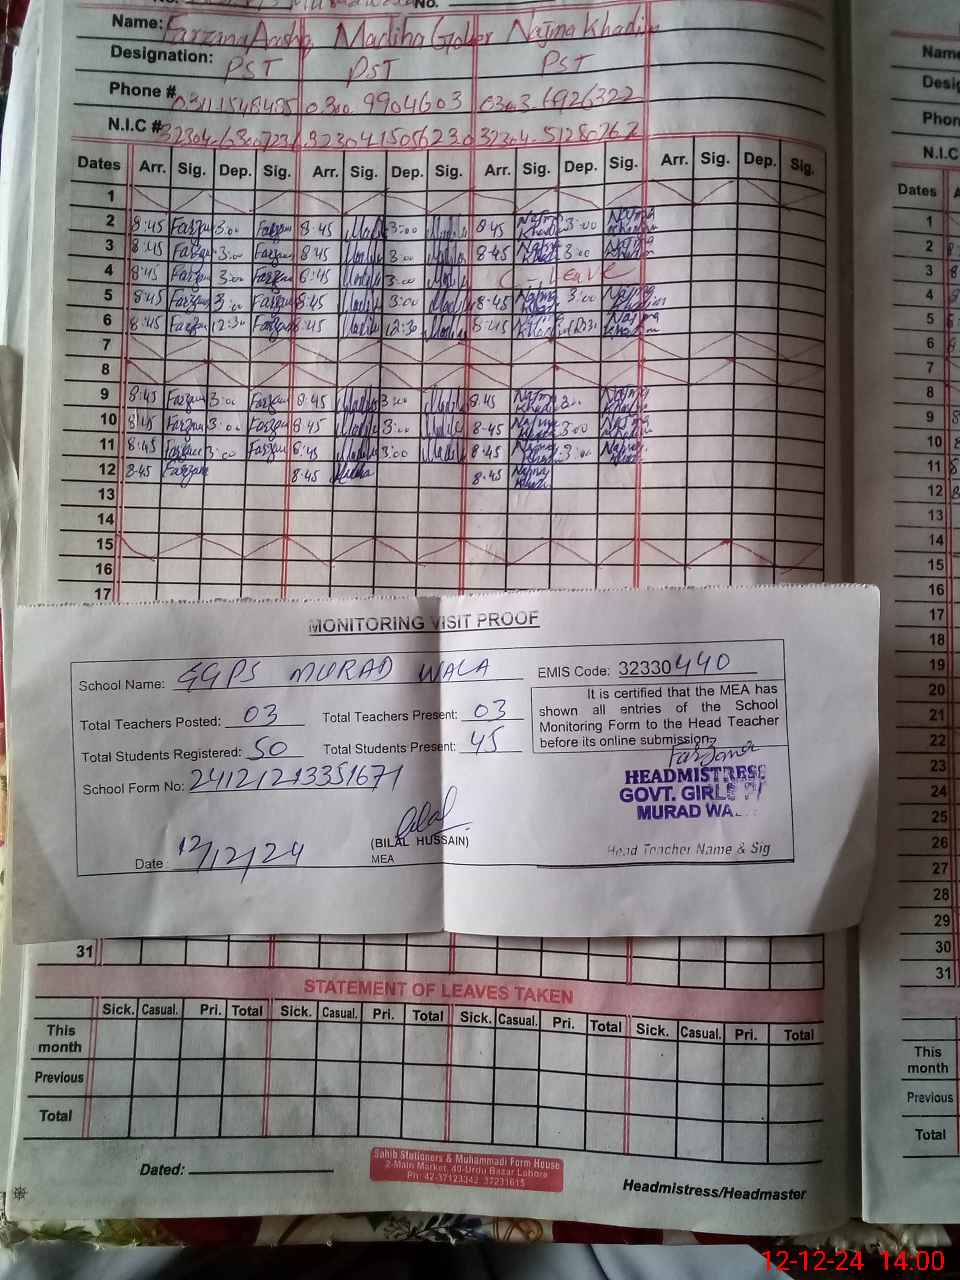 No.
Name: Farzana Aisha Madiha Gober Najma Khadim
Designation: PST PST PST
Phone # 0300.9904603 0303.6926322
N.I.C #
Dates Arr. Sig. Dep. Sig. Arr. Sig. Dep. Sig. Arr. Sig. Dep. Sig. Arr. Sig. Dep. Sig.
1
2 8:45 Farzan 3:00 Farzan 8:45 3:00 8:45 Najma Khadim 3:00 Najma Khadim
3 8:45 Farzan 3:00 Farzan 8:45 3:00 8:45 Najma 3:00 Najma Khadim
4 8:45 Farzan 3:00 Farzan 8:45 3:00 C - Leave
5 8:45 Farzan 3:00 Farzan 8:45 3:00 8:45 Najma 3:00 Najma Khadim
6 8:45 Farzan 12:30 Farzan 8:45 12:30 8:45 Najma Najma Khadim
7
8
9 8:45 Farzan 3:00 Farzan 8:45 3:00 8.45 Najma Najma
10 8:45 Farzan 3:00 Farzan 8:45 3:00 8.45 Najma 3:00 Najma Khadim
11 8:45 Farzan 3:00 Farzan 8:45 3:00 8:45 Najma 3:00 Najma
12 8:45 Farzan 8:45 8:45 Najma
13
14
15
16
17
MONITORING VISIT PROOF
School Name: GGPS MURAD WALA EMIS Code: 32330440
Total Teachers Posted: 03 Total Teachers Present: 03
Total Students Registered: 50 Total Students Present: 45
School Form No: 24121213351671
It is certified that the MEA has
shown all entries of the School
Monitoring Form to the Head Teacher
before its online submission.
Farzana
HEADMISTRESS
GOVT. GIRLS
MURAD WA
(BILAL HUSSAIN)
MEA
Date: 12/12/24
Head Teacher Name & Sig
31
STATEMENT OF LEAVES TAKEN
Sick. Casual. Pri. Total Sick. Casual. Pri. Total Sick. Casual. Pri. Total Sick. Casual. Pri. Total
This month
Previous
Total
Dated:
Sahib Stationers & Muhammadi Form House
2-Main Market, 40-Urdu Bazar Lahore
Ph: 42-37123342 37231615
Headmistress/Headmaster
Name
Desig
Phon
N.I.C
Dates A
1
2
3
4
5
6
7
8
9
10
11
12
13
14
15
16
17
18
19
20
21
22
23
24
25
26
27
28
29
30
31
This month
Previous
Total
12-12-24 14:00